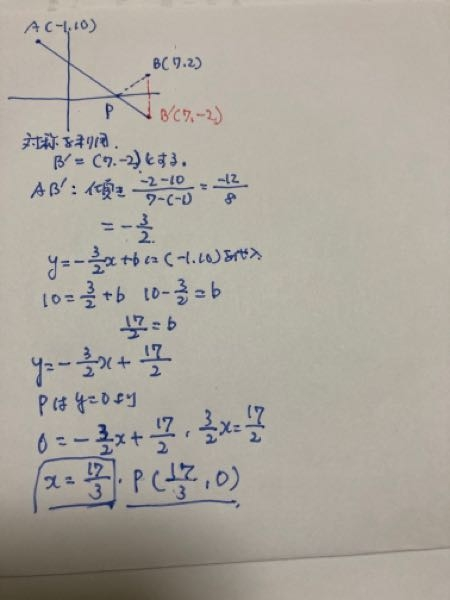 A(-1.10)
B(7.2)
P
B'(7.-2)
対称を利用.
B'=(7.-2)とする。
AB':傾き = \frac{-2-10}{7-(-1)} = \frac{-12}{8}
= -\frac{3}{2}
y=-\frac{3}{2}x+bに(-1.10)を代入
10=\frac{3}{2}+b 10-\frac{3}{2}=b
\frac{17}{2}=b
y=-\frac{3}{2}x+\frac{17}{2}
Pはy=0より
0=-\frac{3}{2}x+\frac{17}{2}, \frac{3}{2}x=\frac{17}{2}
x=\frac{17}{3}. P(\frac{17}{3},0)